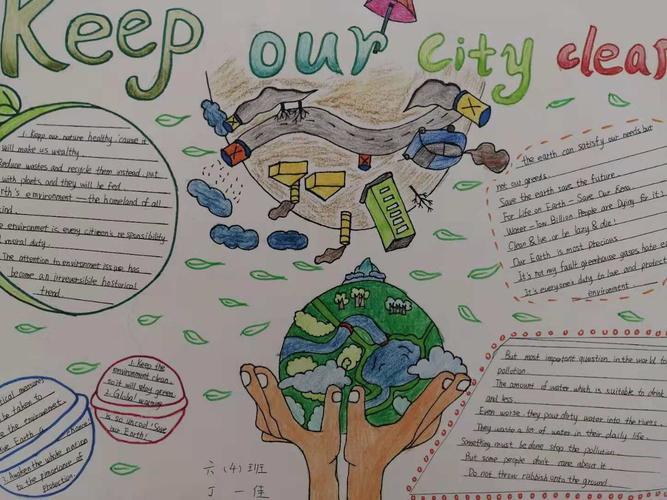 Keep our city clean
1. Keep our nature healthy 'cause it
will make us wealthy.
Reduce wastes and recycle them instead, put
with plants, and they will be fed
th's environment — the homeland of all
kind.
environment is every citizen's responsibility
moral duty.
The attention to environment issue has
become an irreversible historical
trend.
the earth can satisfy our needs but
not our greends.
Save the earth save the future.
For life on Earth - Save Our
Water - Two Billion People are Dying for it!
Clean & live or be lazy & die!
Our Earth is most precious
It's not my fault greenhouse gases hate
It's everyone's duty to love and protect
environment.
1. Keep the
environment clean,
so it will stay green
2. Global warming
is so uncool 'Save
our Earth!
measures
be taken to
the environment.
Earth a
chance!
3. Awaken the whole nation
to the importance of
Protection.
But most important question in the world to
pollution.
The amount of water which is suitable to drink
and less.
Even worse they pout dirty water into the rivers.
They waste a lot of water in their daily life.
Something must be done stop the pollution.
But some people don't care about it.
Do not throw rubbish onto the ground.
六(4)班
丁一佳